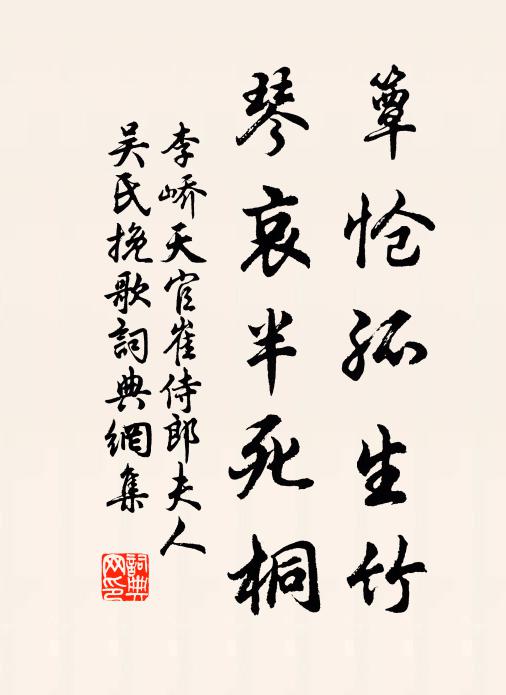 簟怆孤生竹
琴哀半死桐
李嶠天官崔侍郎夫人
吴氏挽歌詞典網集
詞典网印